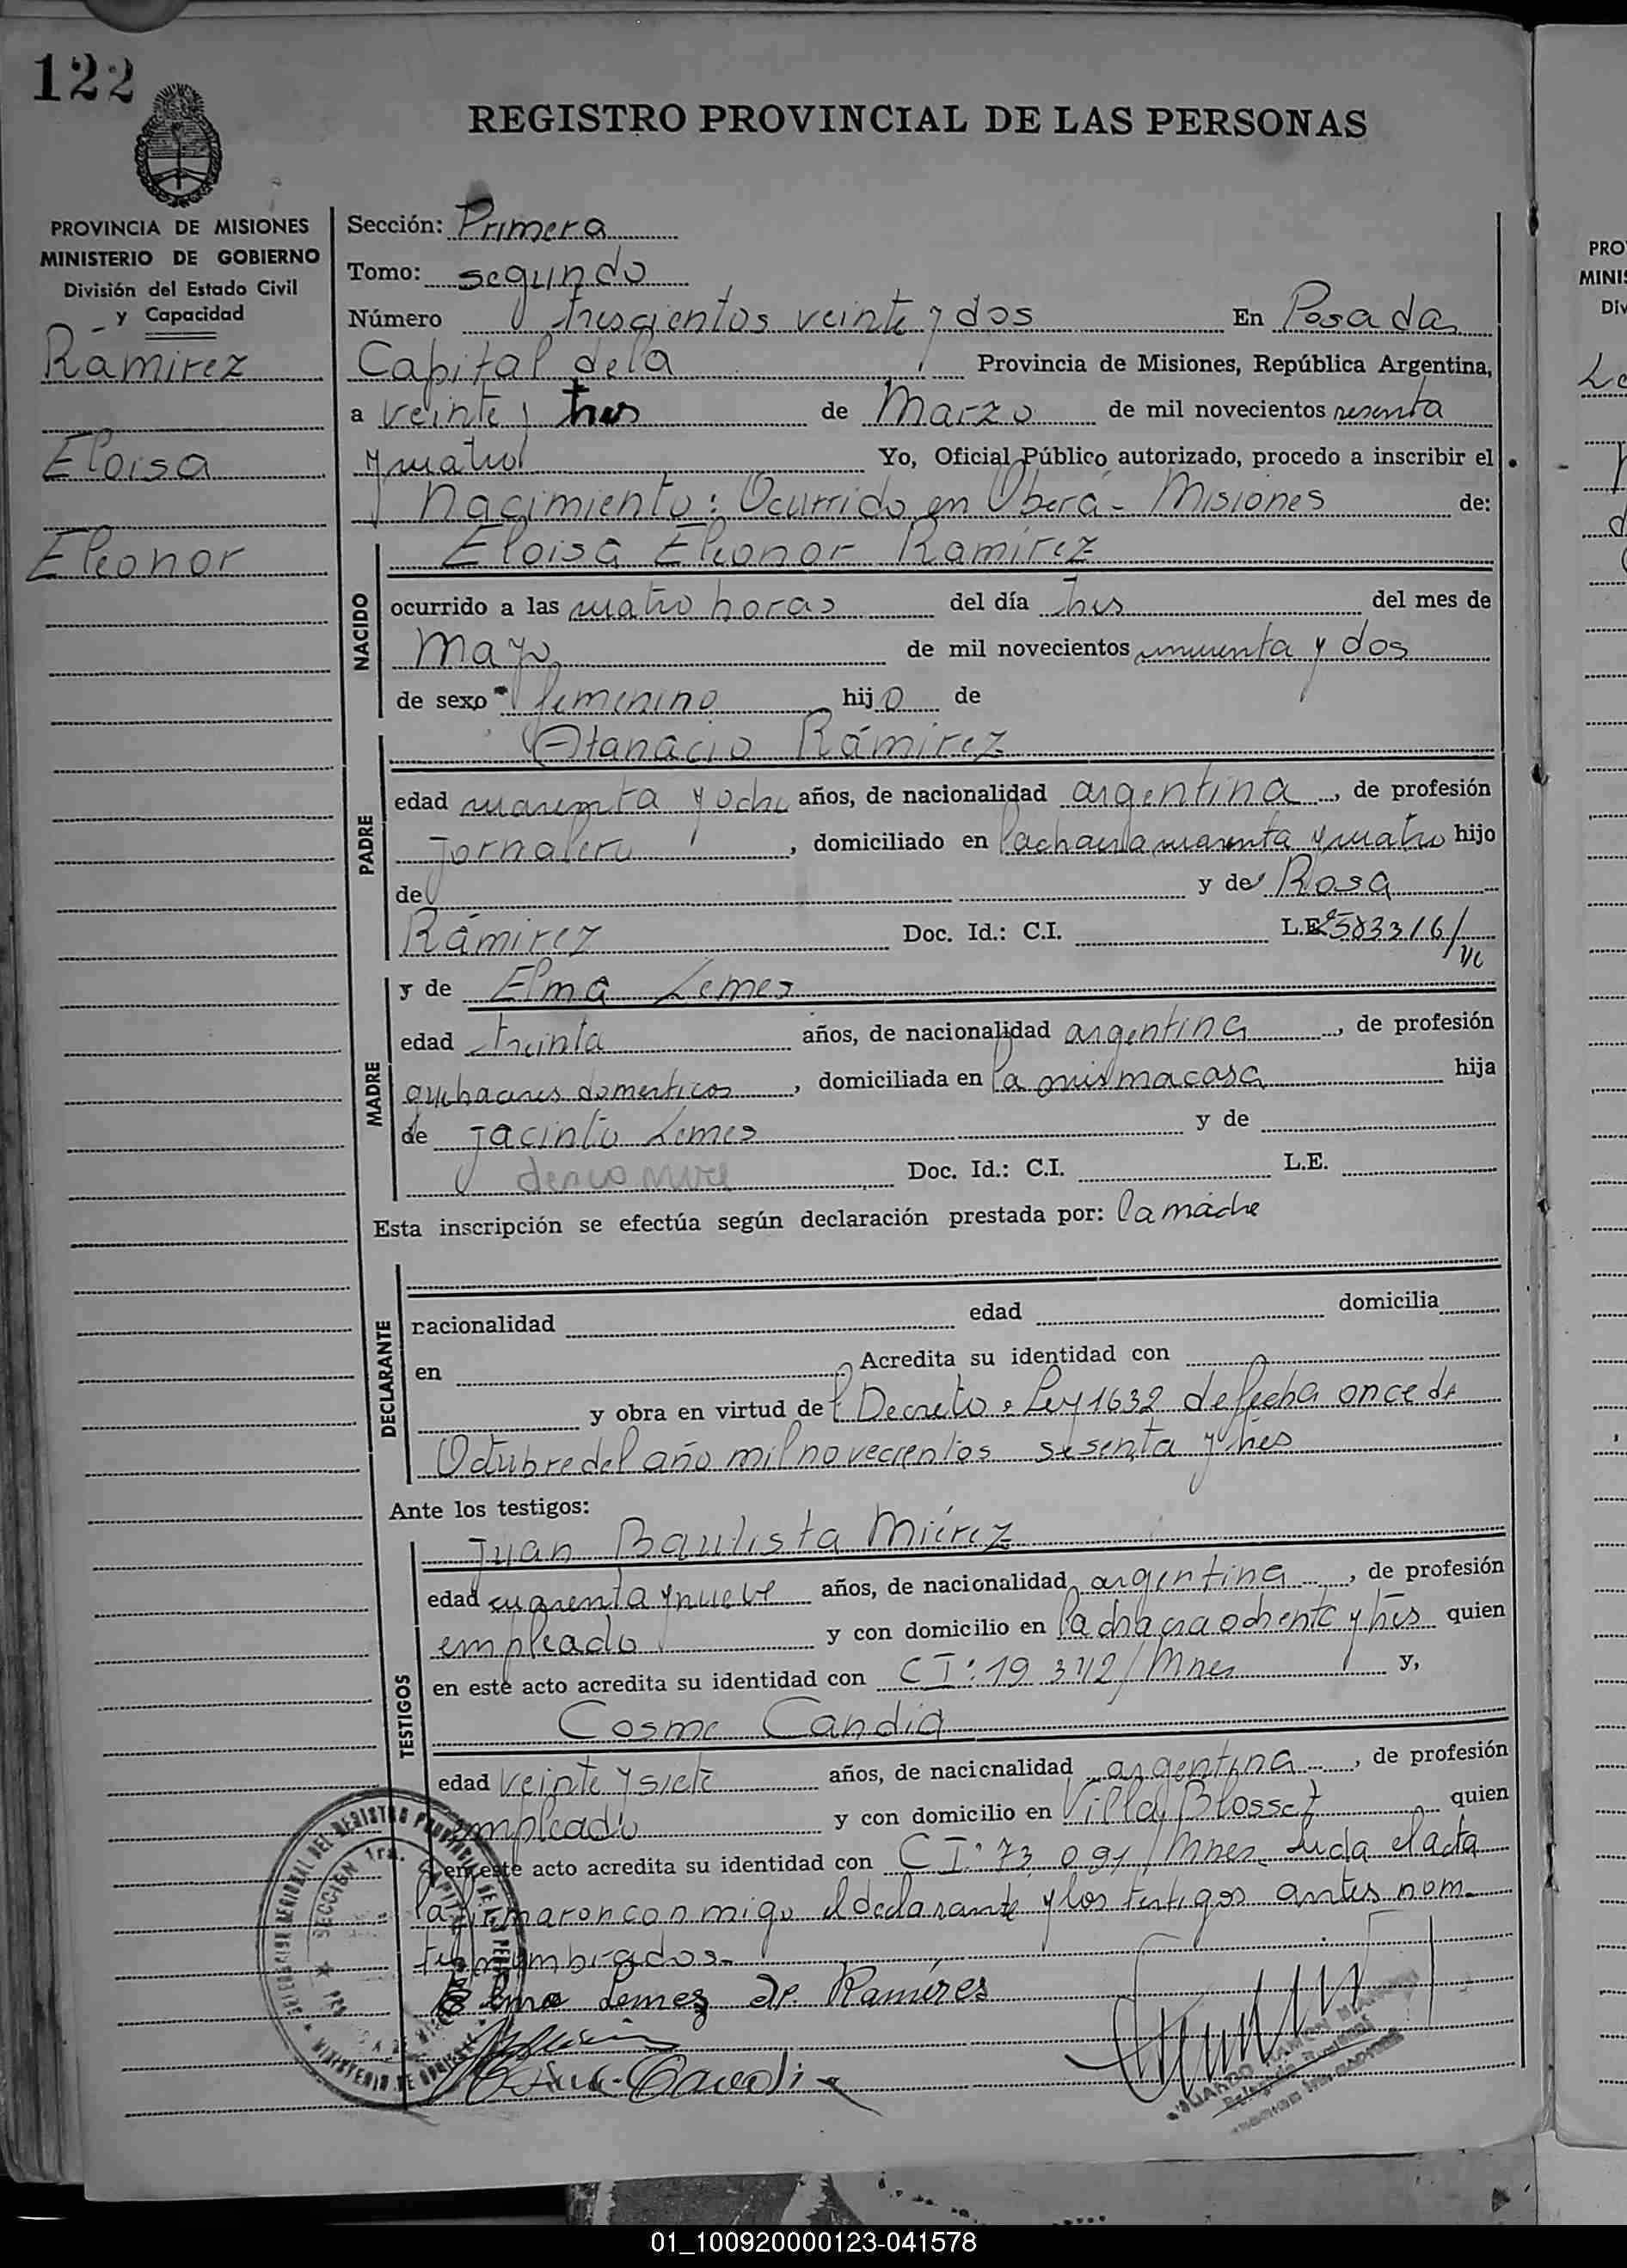 122
REGISTRO PROVINCIAL DE LAS PERSONAS
PROVINCIA DE MISIONES
MINISTERIO DE GOBIERNO
División del Estado Civil
y Capacidad
Ramirez
Eloisa
Eleonor
Sección: Primera
Tomo: segundo
Número trescientos veinte y dos En Posadas
Capital de la Provincia de Misiones, República Argentina,
a veinte y tres de Marzo de mil novecientos sesenta
y cuatro Yo, Oficial Público autorizado, procedo a inscribir el
Nacimiento: Ocurrido en Oberá - Misiones de:
NACIDO
Eloisa Eleonor Ramirez
ocurrido a las cuatro horas del día tres del mes de
mayo de mil novecientos cincuenta y dos
de sexo femenino hijo de
PADRE
Atanacio Ramirez
edad cuarenta y ocho años, de nacionalidad argentina, de profesión
jornalero, domiciliado en la chacra cuarenta y cuatro hijo
de y de Rosa
Ramirez Doc. Id.: C.I. L.E. 2583316/
MADRE
y de Elma Lemes
edad treinta años, de nacionalidad argentina, de profesión
quehaceres domesticos, domiciliada en la misma casa hija
de Jacinto Lemes y de
Doc. Id.: C.I. L.E.
Esta inscripción se efectúa según declaración prestada por: la madre
DECLARANTE
nacionalidad edad domicilia
en Acredita su identidad con
y obra en virtud del Decreto-Ley 1632 de fecha once de
Octubre del año mil novecientos sesenta y tres
Ante los testigos:
TESTIGOS
Juan Bautista Mierez
edad cuarenta y nueve años, de nacionalidad argentina, de profesión
empleado y con domicilio en la chacra ochenta y tres quien
en este acto acredita su identidad con C I: 19 342/Mnes y,
Cosme Candia
edad veinte y siete años, de nacionalidad argentina, de profesión
empleado y con domicilio en Villa Blosset quien
en este acto acredita su identidad con C I: 73 091/Mnes Leida el acta
la firmaron conmigo el declarante y los testigos antes nom-
Elma Lemez de Ramires
SECCION 1ra.
01_100920000123-041578